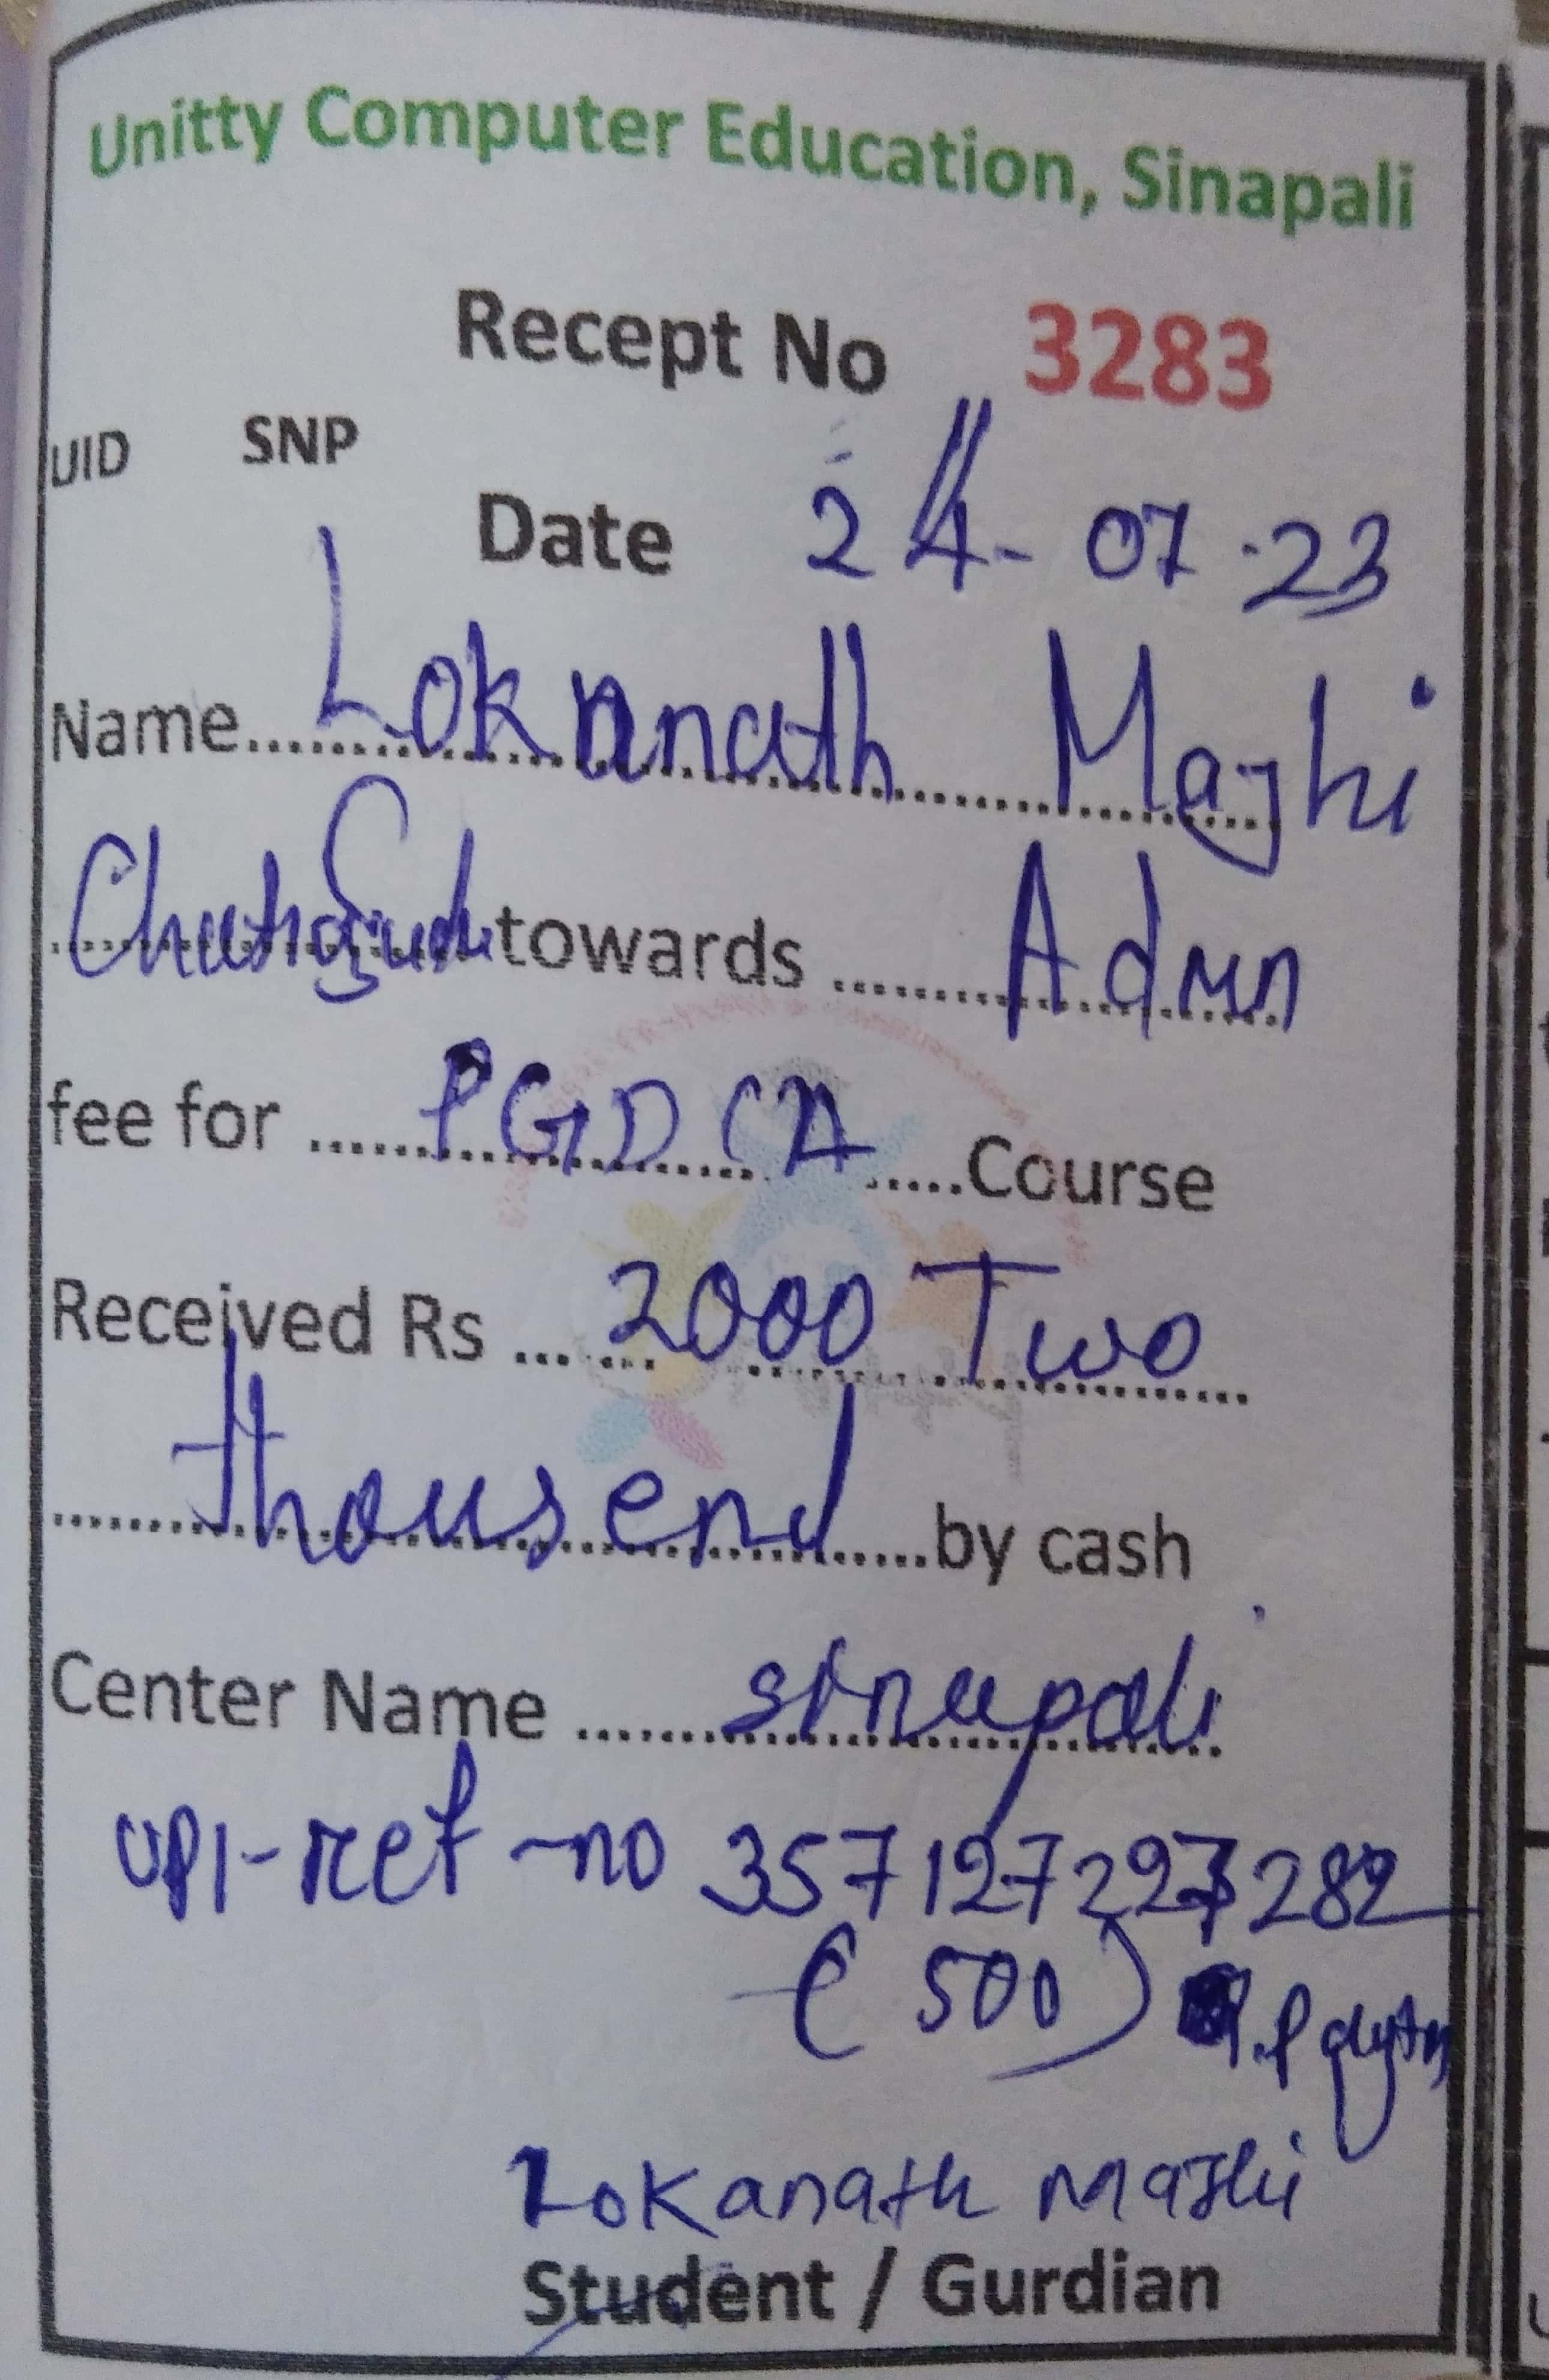 Unitty Computer Education, Sinapali
Recept No 3283
UID SNP
Date 24-07-23
Name...... Lokanath Majhi
towards ...... Admn
fee for ...... PGDCA ......Course
Received Rs ... 2000 Two
...... thousend ......by cash
Center Name ...... sinapali
UPI-ref-no 357127227282
(500) Paytm
Lokanath Majhi
Student / Gurdian